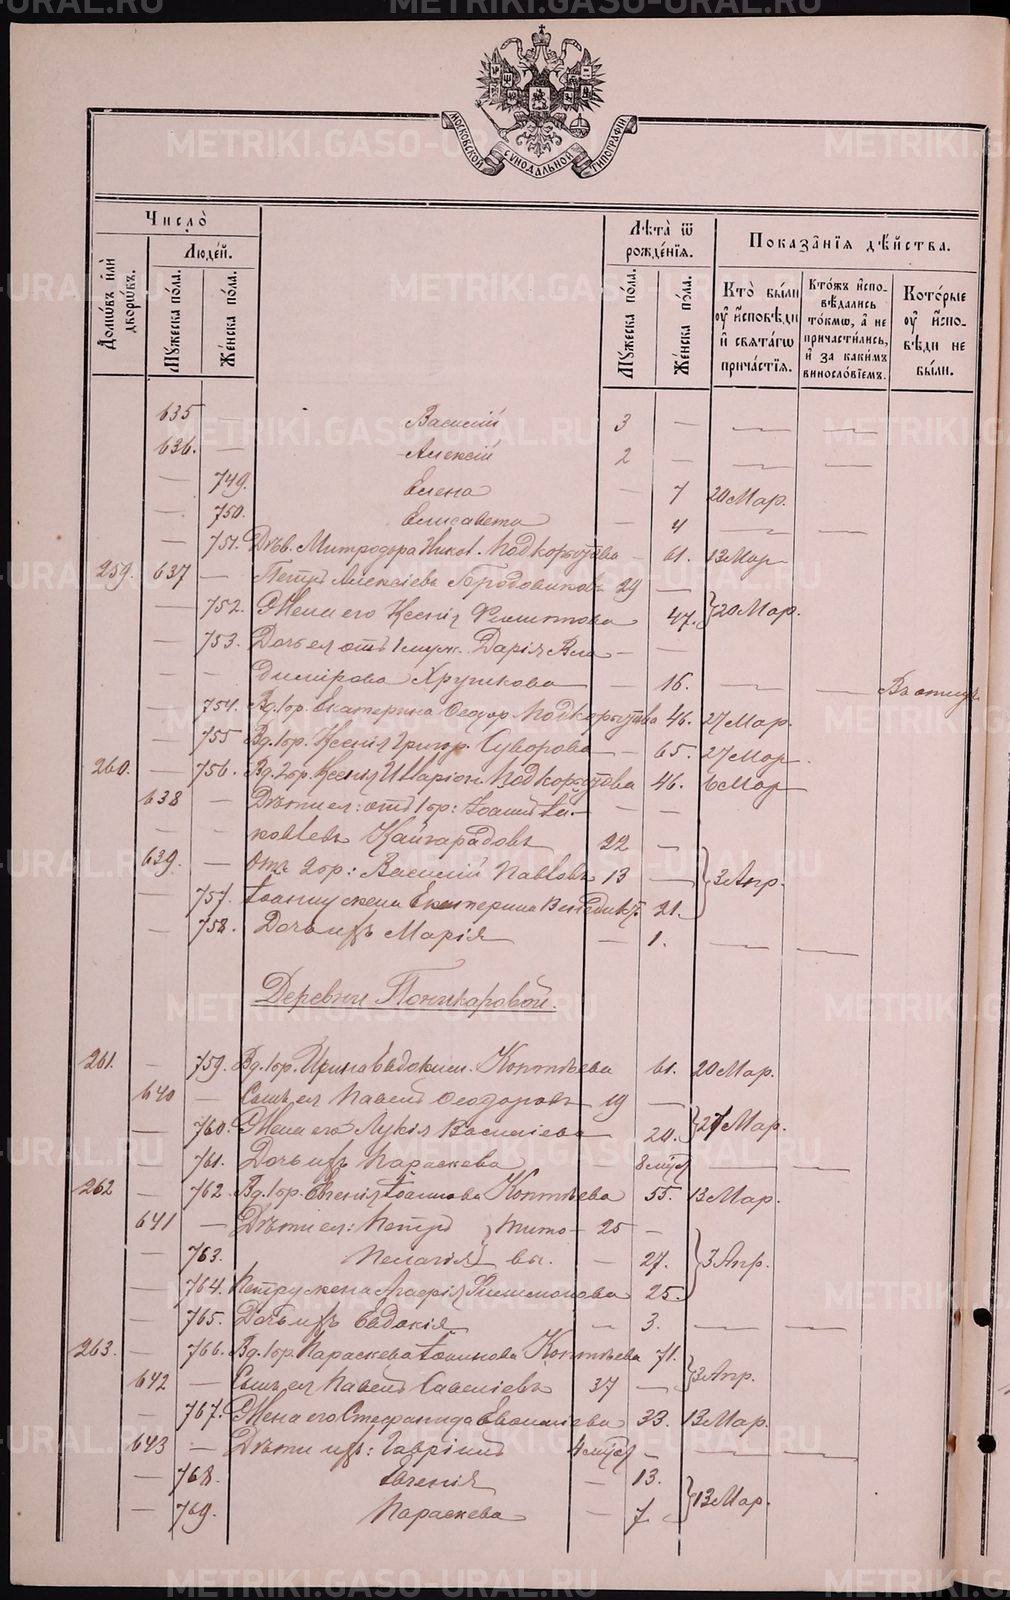 METRIKI.GASO-URAL.RU
МОСКОВСКОЙ СѴНОДАЛЬНОЙ ТИПОГРАФІИ
Число̀
Домѡ́въ и҆лѝ дворѡ́въ.
Люде́й.
Мꙋ́жеска по́ла.
Же́нска по́ла.
Лѣ́та ѿ рожде́нїѧ.
Мꙋ́жеска по́ла.
Же́нска по́ла.
Показа̑нїѧ дѣ́йства.
Кто̀ бы́ли ᲂу҆ и҆́сповѣди и҆ свѧта́гѡ прича́стїѧ.
Кто́жъ и҆спо-вѣ́дались то́кмѡ, а҆ не причасти́лись, и҆ за каки́мъ винослóвїемъ.
Кото́рые ᲂу҆ и҆́спо-вѣди не бы́ли.
635 — Василій 3 — — —
636. — Алексій 2 — — —
— 749. Елена — 7 20 Мар.
— 750. Елисавета — 4 — —
— 751. Дѣв. Митродора Никол. Подкорытова — 61. 13 Мар
259. 637 — Петръ Алексіевъ Бродовиковъ 29 —
— 752. Жена его Ксенія Филиппова 47. } 20 Мар.
— 753. Дочь ея отъ 1 муж. Дарія Вла — —
— — димірова Хрушкова — 16. — — Въ отлуч.
— 754. Вд. 1 бр. Екатерина Ѳеодор. Подкорытова 46. 27 Мар.
— 755 Вд. 1 бр. Ксенія Григор. Суворова — 65. 27 Мар.
260. — 756. Вд. 2 бр. Ксенія Иларіон. Подкорытова 46. 6 Мар
638 — Дѣти ея: отъ 1 бр: Іоаннъ Іа- — —
— — ковлевъ Кайгарадовъ 22 —
639. — Отъ 2 бр: Василій Павловъ 13 — } 3 Апр.
— 757. Іоанну жена Екатерина Венедикт. 21.
— 758. Дочь ихъ Марія — 1. — —
Деревни Поникаровой.
261. — 759. Вд. 1 бр. Ирина Евдоким. Коптѣева 61. 20 Мар.
640 — Сынъ ея Павелъ Ѳеодоровъ 19 —
— 760. Жена его Лукія Василіева 20. } 27 Мар.
— 761. Дочь ихъ Параскева — 8 мѣс — —
262 — 762. Вд. 1 бр. Евгенія Іоаннова Коптѣева 55. 13 Мар.
641 — Дѣти ея: Петръ } Тито- 25 —
— 763. Пелагія } вы. — 27. } 3 Апр.
— 764. Петру жена Агафія Филимонова 25.
— 765. Дочь ихъ Евдокія — 3. — —
263. — 766. Вд. 1 бр. Параскева Іоаннова Коптѣева 71.
642 — Сынъ ея Павелъ Савеліевъ 37 — } 3 Апр.
— 767. Жена его Стефанида 33. 13 Мар.
643 — Дѣти ихъ: Гавріилъ 4 мѣс — — —
— 768. Евгенія — 13.
— 769. Параскева — 7 } 13 Мар.